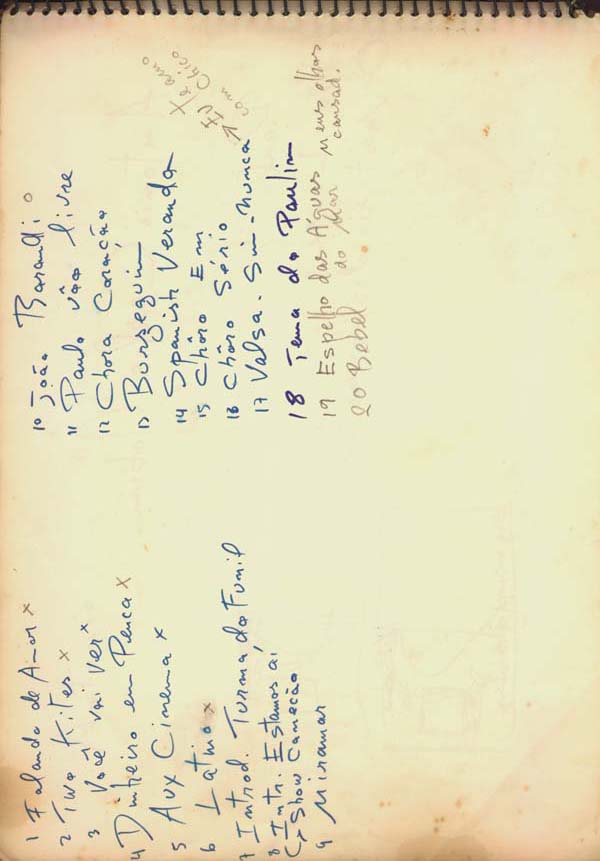 1 Falando de Amor x
2 Two Kites x
3 Você vai Ver x
4 Dinheiro em Penca x
5 Aux Cinema x
6 Latino x
7 Introd. Turma do Funil
8 Intr. Estamos aí
Show Começão
9 Miramar
10 João Barandi o
11 Paulo vôo livre
12 Chora Coração
13 Borseguim
14 Spanish Veranda
15 Chôro Em
16 Chôro Sério
17 Valsa. Sin-nunca
EU X
com Chico
18 Tema do Paulin
19 Espelho das Águas meus olhos
do Mar cansad.
20 Bebel